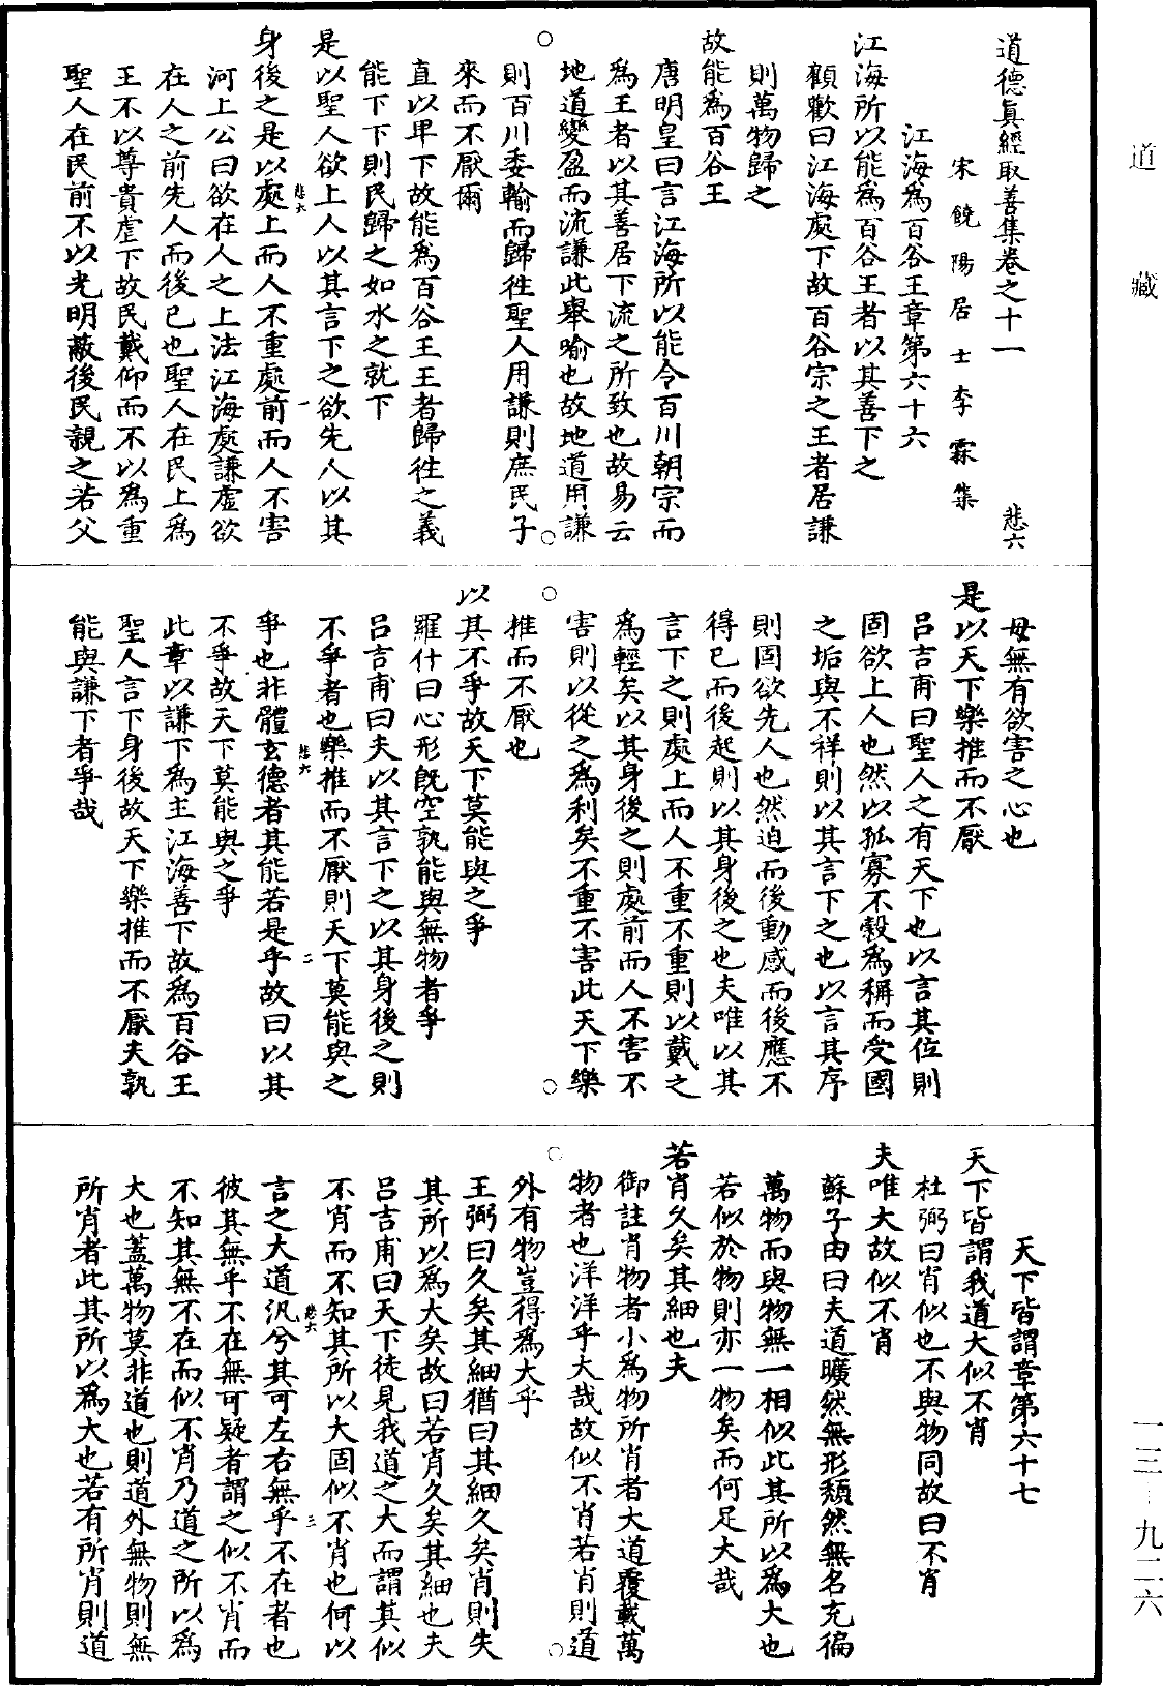 道德眞經取善集卷之十一 悲六
宋饒陽居士李霖集
江海爲百谷王章第六十六
江海所以能爲百谷王者以其善下之
顧歡曰江海處下故百谷宗之王者居謙
則萬物歸之
故能爲百谷王
唐明皇曰言江海所以能令百川朝宗而
爲王者以其善居下流之所致也故易云
地道變盈而流謙此舉喻也故地道用謙
則百川委輸而歸往聖人用謙則庶民子
來而不厭爾
直以卑下故能爲百谷王王者歸往之義
能下下則民歸之如水之就下
是以聖人欲上人以其言下之欲先人以其
身後之是以處上而人不重處前而人不害
河上公曰欲在人之上法江海處謙虛欲
在人之前先人而後己也聖人在民上爲
王不以尊貴虐下故民戴仰而不以爲重
聖人在民前不以光明蔽後民親之若父
母無有欲害之心也
是以天下樂推而不厭
呂吉甫曰聖人之有天下也以言其位則
固欲上人也然以孤寡不穀爲稱而受國
之垢與不祥則以其言下之也以言其序
則固欲先人也然迫而後動感而後應不
得已而後起則以其身後之也夫唯以其
言下之則處上而人不重不重則以戴之
爲輕矣以其身後之則處前而人不害不
害則以從之爲利矣不重不害此天下樂
推而不厭也
以其不爭故天下莫能與之爭
羅什曰心形旣空孰能與無物者爭
呂吉甫曰夫以其言下之以其身後之則
不爭者也樂推而不厭則天下莫能與之
爭也非體玄德者其能若是乎故曰以其
不爭故天下莫能與之爭
此章以謙下爲主江海善下故爲百谷王
聖人言下身後故天下樂推而不厭夫孰
能與謙下者爭哉
天下皆謂章第六十七
天下皆謂我道大似不肖
杜弼曰肖似也不與物同故曰不肖
夫唯大故似不肖
蘇子由曰夫道曠然無形頹然無名充徧
萬物而與物無一相似此其所以爲大也
若似於物則亦一物矣而何足大哉
若肖久矣其細也夫
御註肖物者小爲物所肖者大道覆載萬
物者也洋洋乎大哉故似不肖若肖則道
外有物豈得爲大乎
王弼曰久矣其細猶曰其細久矣肖則失
其所以爲大矣故曰若肖久矣其細也夫
呂吉甫曰天下徒見我道之大而謂其似
不肖而不知其所以大固似不肖也何以
言之大道汎兮其可左右無乎不在者也
彼其無乎不在無可疑者謂之似不肖而
不知其無不在而似不肖乃道之所以爲
大也蓋萬物莫非道也則道外無物則無
所肖者此其所以爲大也若有所肖則道
悲六 一
悲六 二
悲六 三
道藏
一三-九二六